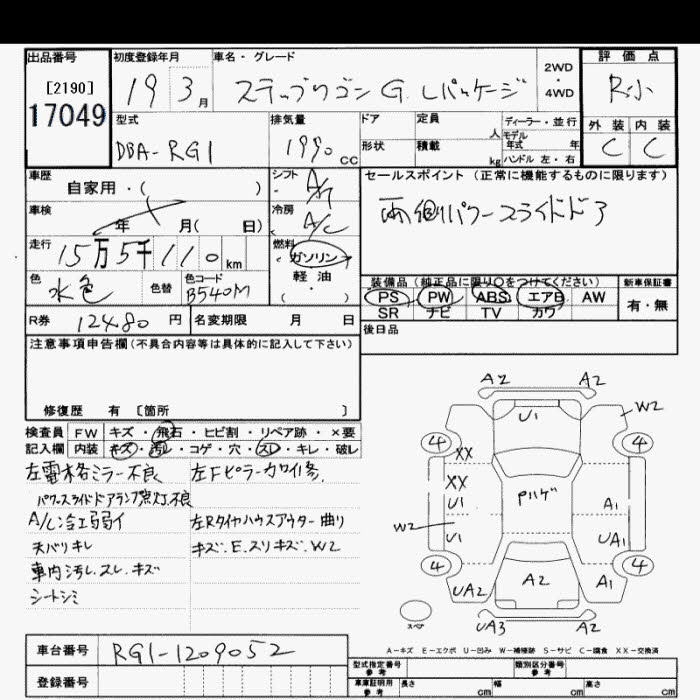 出品番号 初度登録年月 車名・グレード 評価点
[2190] 19 3月 ステップワゴン G Lパッケージ 2WD・4WD R小
17049
型式 排気量 ドア 定員 人 ディーラー・並行 外装 内装
DBA-RG1 1990cc 形状 積載 kg モデル年式 年 ハンドル 左・右 C C
車歴 自家用・( ) シフト A/T セールスポイント(正常に機能するものに限ります)
車検 年 月( 日) 冷房 A/C 両側パワースライドドア
走行 15万5千110km 燃料 ガソリン・軽油・( )
色 水色 色替 色コード B540M
装備品(純正品に限り○をつけてください) 新車保証書
PS PW ABS エアB AW 有・無
SR ナビ TV カワ
R券 12480円 名変期限 月 日 後日品
注意事項申告欄(不具合内容等は具体的に記入して下さい)
修復歴 有 〔箇所 〕
検査員 FW キズ・飛石・ヒビ割・リペア跡・×要
記入欄 内装 キズ・汚レ・コゲ・穴・スレ・キレ・破レ
左電格ミラー不良 左Fピラーカワイ修.
パワースライドドアランプ点灯不良
A/C冷エ弱イ 左Rタイヤハウスアウター曲り
天バリキレ キズ.E.スリキズ.W2
車内汚レ.スレ.キズ
シートシミ
A2 A2
U1 W2
4 4
XX
XX
U1 Pハゲ A1
W2 U1 UA1
4 4
UA2 A2 A1
スペア UA3 A2
A-キズ E-エクボ U-凹み W-補修跡 S-サビ C-腐食 XX-交換済
車台番号 RG1-1209052
登録番号
型式指定番号 参考 類別区分番号 参考
車庫証明用 参考 長さ cm 幅 cm 高さ cm